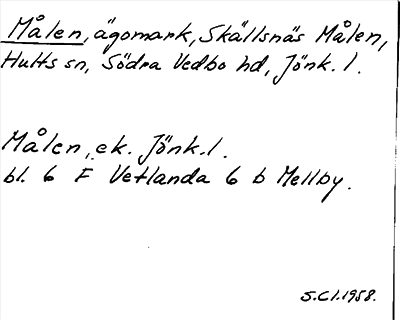 Målen, ägomark, Skällsnäs Målen,
Hults sn, Södra Vedbo hd, Jönk. l.
Målen, ek. Jönk. l.
bl. 6 F Vetlanda 6 b Mellby.
S.Cl.1958.